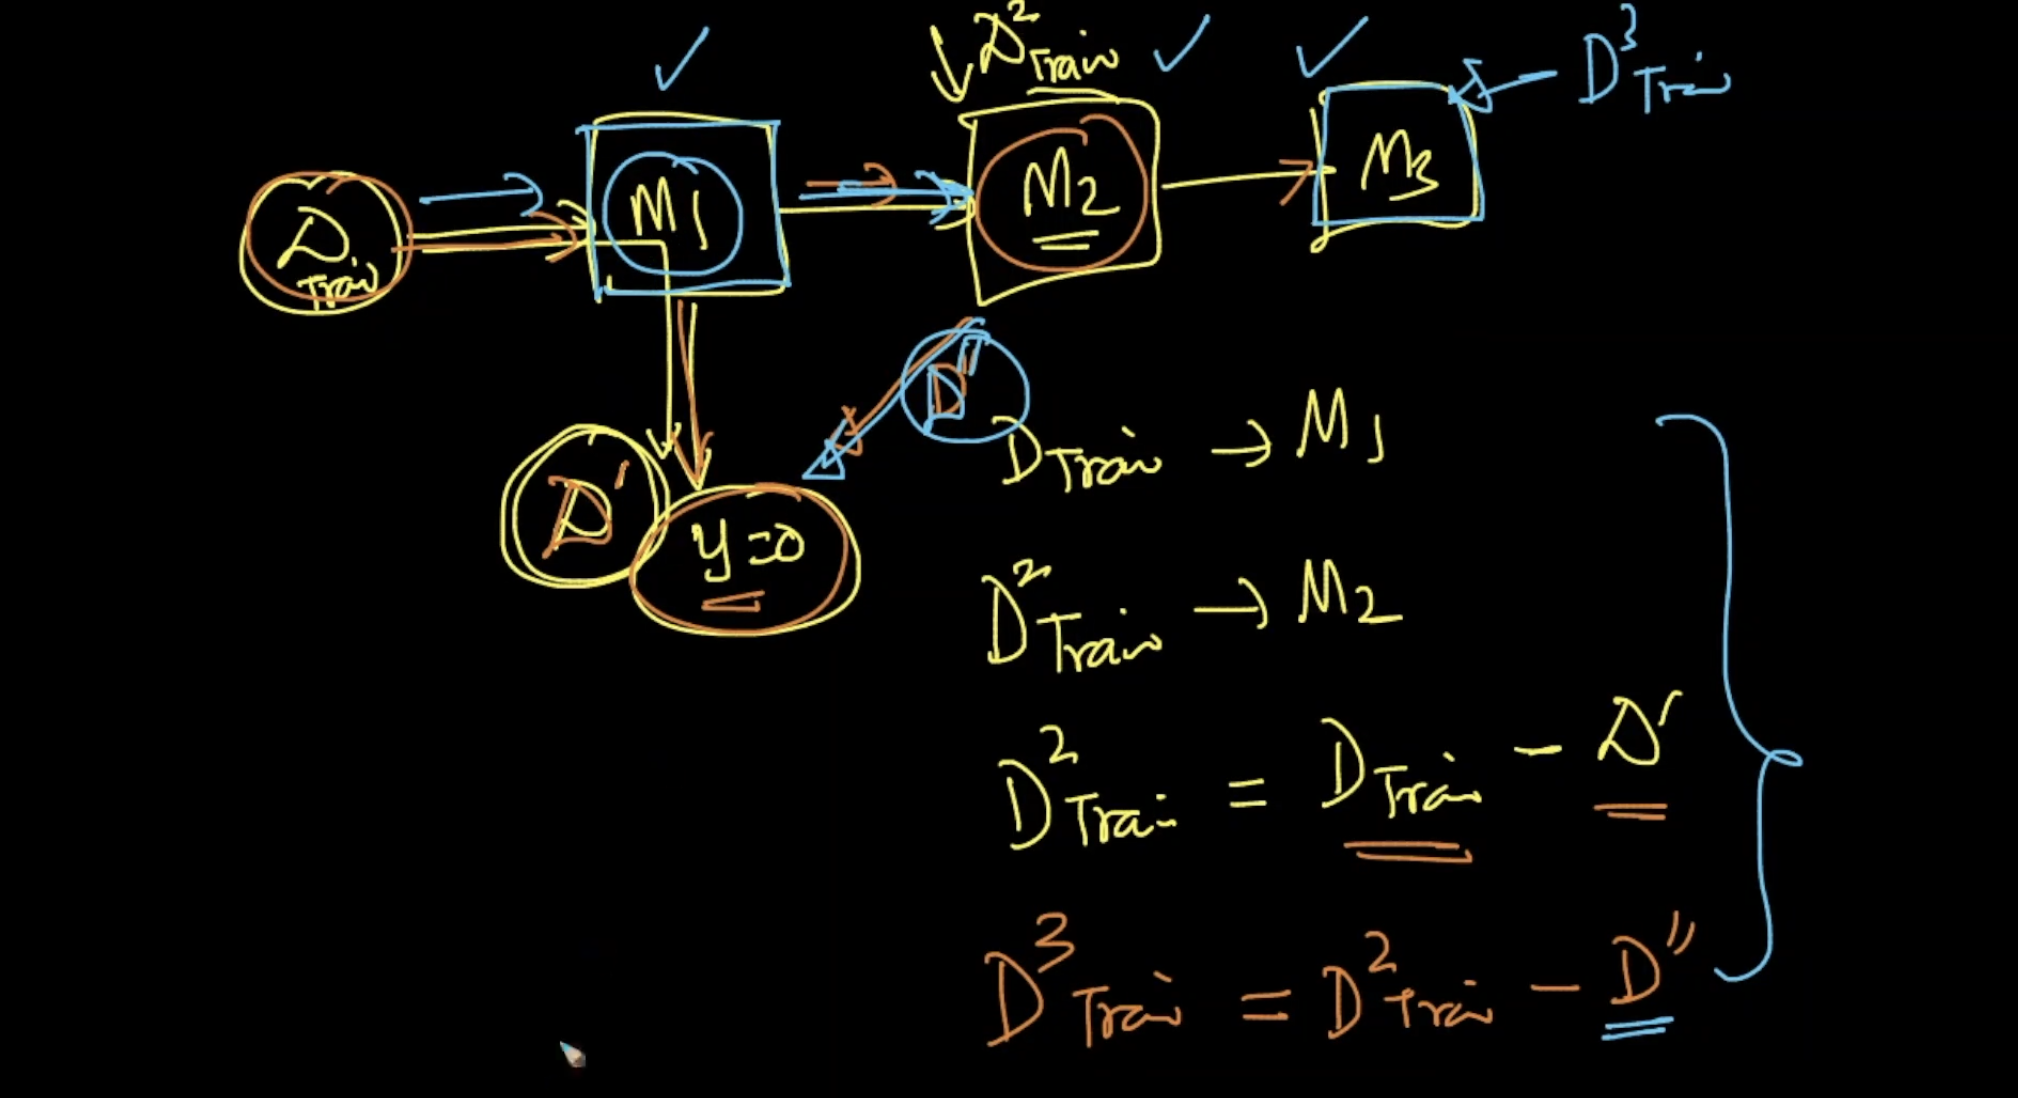 D²Train
D³Train
DTrain
M1
M2
M3
D''
DTrain → M1
D'
y=0
D²Train → M2
D²Train = DTrain - D'
D³Train = D²Train - D''